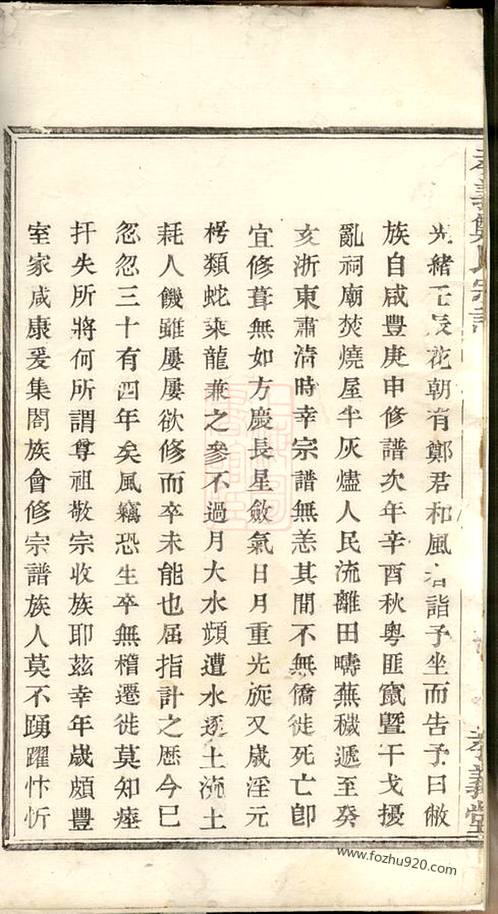 孝義鄭氏宗譜
孝義堂
光緒壬辰花朝有鄭君和風者詣予坐而告予曰敝
族自咸豐庚申修譜次年辛酉秋粵匪竄暨干戈擾
亂祠廟焚燒屋半灰燼人民流離田疇蕪穢遞至癸
亥浙東肅清時幸宗譜無恙其間不無僑徙死亡卽
宜修葺無如方慶長星斂氣日月重光旋又歲淫元
枵類蛇乘龍兼之參不過月大水頻遭水逐土流土
耗人饑雖屢屢欲修而卒未能也屈指計之歷今已
忽忽三十有四年矣風竊恐生卒無稽遷徙莫知瘞
扞失所將何所謂尊祖敬宗收族耶茲幸年歲頗豐
室家咸康爰集閤族會修宗譜族人莫不踴躍忭忻
www.fozhu920.com